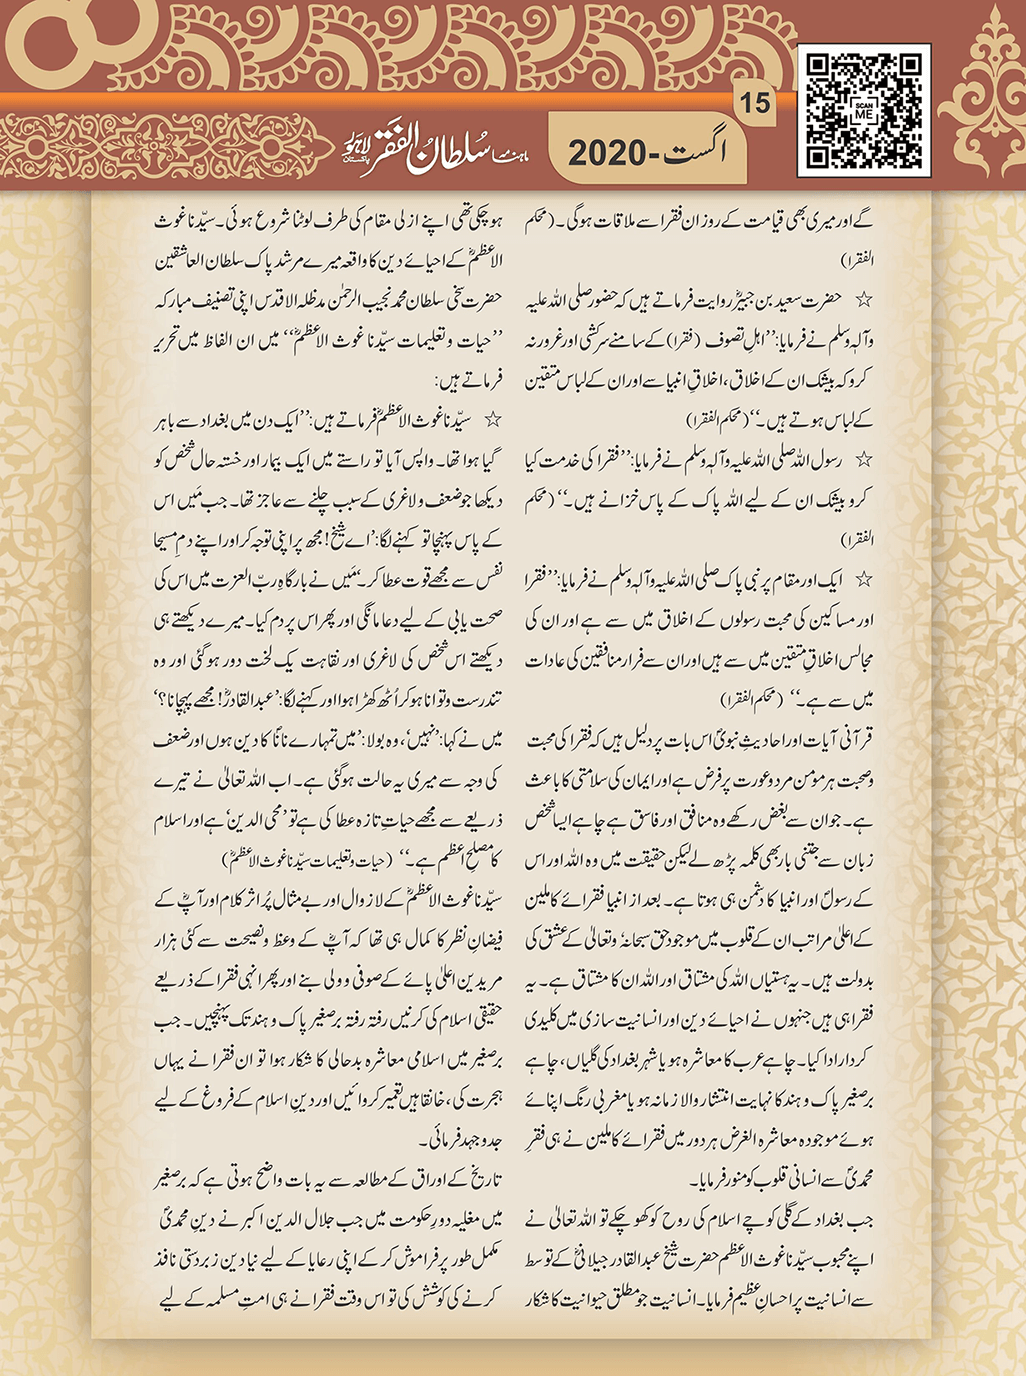 15
SCAN
ME
اگست-2020
ماہنامہ سلطان الفقر لاہور
پاکستان
گے اور میری بھی قیامت کے روز ان فقرا سے ملاقات ہوگی۔ (محکم
الفقرا)
☆ حضرت سعید بن جبیرؓ روایت فرماتے ہیں کہ حضور صلی اللہ علیہ
وآلہٖ وسلم نے فرمایا: ’’اہلِ تصوف (فقرا) کے سامنے سرکشی اور غرور نہ
کرو کہ بیشک ان کے اخلاق، اخلاقِ انبیا سے اور ان کے لباس متقین
کے لباس ہوتے ہیں۔‘‘ (محکم الفقرا)
☆ رسول اللہ صلی اللہ علیہ وآلہٖ وسلم نے فرمایا: ’’فقرا کی خدمت کیا
کرو بیشک ان کے لیے اللہ پاک کے پاس خزانے ہیں۔‘‘ (محکم
الفقرا)
☆ ایک اور مقام پر نبی پاک صلی اللہ علیہ وآلہٖ وسلم نے فرمایا: ’’فقرا
اور مساکین کی محبت رسولوں کے اخلاق میں سے ہے اور ان کی
مجالس اخلاقِ متقین میں سے ہیں اور ان سے فرار منافقین کی عادات
میں سے ہے۔‘‘ (محکم الفقرا)
قرآنی آیات اور احادیثِ نبویؐ اس بات پر دلیل ہیں کہ فقرا کی محبت
وصحبت ہر مومن مرد و عورت پر فرض ہے اور ایمان کی سلامتی کا باعث
ہے۔ جو ان سے بغض رکھے وہ منافق اور فاسق ہے چاہے ایسا شخص
زبان سے جتنی بار بھی کلمہ پڑھ لے لیکن حقیقت میں وہ اللہ اور اس
کے رسولؐ اور انبیا کا دشمن ہی ہوتا ہے۔ بعد از انبیا فقرائے کاملین
کے اعلیٰ مراتب ان کے قلوب میں موجود حق سبحانہٗ وتعالیٰ کے عشق کی
بدولت ہیں۔ یہ ہستیاں اللہ کی مشتاق اور اللہ ان کا مشتاق ہے۔ یہ
فقرا ہی ہیں جنہوں نے احیائے دین اور انسانیت سازی میں کلیدی
کردار ادا کیا۔ چاہے عرب کا معاشرہ ہو یا شہر بغداد کی گلیاں، چاہے
برصغیر پاک و ہند کا نہایت انتشار والا زمانہ ہو یا مغربی رنگ اپنائے
ہوئے موجودہ معاشرہ الغرض ہر دور میں فقرائے کاملین نے ہی فقرِ
محمدیؐ سے انسانی قلوب کو منور فرمایا۔
جب بغداد کے گلی کوچے اسلام کی روح کو کھو چکے تو اللہ تعالیٰ نے
اپنے محبوب سیّدنا غوث الاعظم حضرت شیخ عبدالقادر جیلانیؓ کے توسط
سے انسانیت پر احسانِ عظیم فرمایا۔ انسانیت جو مطلق حیوانیت کا شکار
ہو چکی تھی اپنے ازلی مقام کی طرف لوٹنا شروع ہوئی۔ سیّدنا غوث
الاعظمؓ کے احیائے دین کا واقعہ میرے مرشد پاک سلطان العاشقین
حضرت سخی سلطان محمد نجیب الرحمٰن مدظلہ الاقدس اپنی تصنیف مبارکہ
’’حیات و تعلیمات سیّدنا غوث الاعظمؓ‘‘ میں ان الفاظ میں تحریر
فرماتے ہیں:
☆ سیّدنا غوث الاعظمؓ فرماتے ہیں: ’’ایک دن میں بغداد سے باہر
گیا ہوا تھا۔ واپس آیا تو راستے میں ایک بیمار اور خستہ حال شخص کو
دیکھا جو ضعف و لاغری کے سبب چلنے سے عاجز تھا۔ جب مَیں اس
کے پاس پہنچا تو کہنے لگا: ’اے شیخ! مجھ پر اپنی توجہ کر اور اپنے دمِ مسیحا
نفس سے مجھے قوت عطا کر۔‘ مَیں نے بارگاہِ ربّ العزت میں اس کی
صحت یابی کے لیے دعا مانگی اور پھر اس پر دم کیا۔ میرے دیکھتے ہی
دیکھتے اس شخص کی لاغری اور نقاہت یک لخت دور ہوگئی اور وہ
تندرست و توانا ہو کر اُٹھ کھڑا ہوا اور کہنے لگا: ’عبدالقادرؓ! مجھے پہچانا؟‘
میں نے کہا: ’نہیں‘، وہ بولا: ’میں تمہارے ناناؐ کا دین ہوں اور ضعف
کی وجہ سے میری یہ حالت ہوگئی ہے۔ اب اللہ تعالیٰ نے تیرے
ذریعے سے مجھے حیاتِ تازہ عطا کی ہے تو ’محی الدین‘ ہے اور اسلام
کا مصلحِ اعظم ہے۔‘‘ (حیات و تعلیمات سیّدنا غوث الاعظمؓ)
سیّدنا غوث الاعظمؓ کے لازوال اور بے مثال پُر اثر کلام اور آپؓ کے
فیضانِ نظر کا کمال ہی تھا کہ آپؓ کے وعظ و نصیحت سے کئی ہزار
مریدین اعلیٰ پائے کے صوفی و ولی بنے اور پھر انہی فقرا کے ذریعے
حقیقی اسلام کی کرنیں رفتہ رفتہ برصغیر پاک و ہند تک پہنچیں۔ جب
برصغیر میں اسلامی معاشرہ بدحالی کا شکار ہوا تو ان فقرا نے یہاں
ہجرت کی، خانقاہیں تعمیر کروائیں اور دینِ اسلام کے فروغ کے لیے
جدوجہد فرمائی۔
تاریخ کے اوراق کے مطالعہ سے یہ بات واضح ہوتی ہے کہ برصغیر
میں مغلیہ دورِ حکومت میں جب جلال الدین اکبر نے دینِ محمدیؐ
مکمل طور پر فراموش کر کے اپنی رعایا کے لیے نیا دین زبردستی نافذ
کرنے کی کوشش کی تو اس وقت فقرا نے ہی امتِ مسلمہ کے لیے